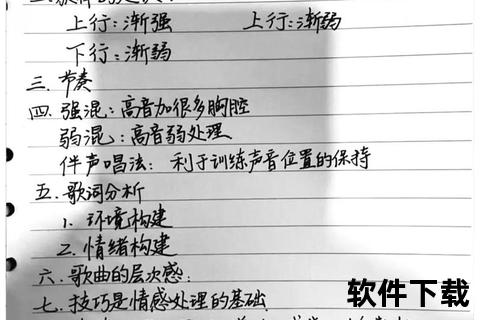 上行：渐强　上行：渐弱
下行：渐弱
三. 节奏
四. 强混：高音加很多胸腔
弱混：高音弱处理
伴声唱法：利于训练声音位置的保持
五. 歌词分析
1. 环境构建
2. 情绪构建
六. 歌曲的层次感：
七. 技巧是情感处理的基础
软件下载